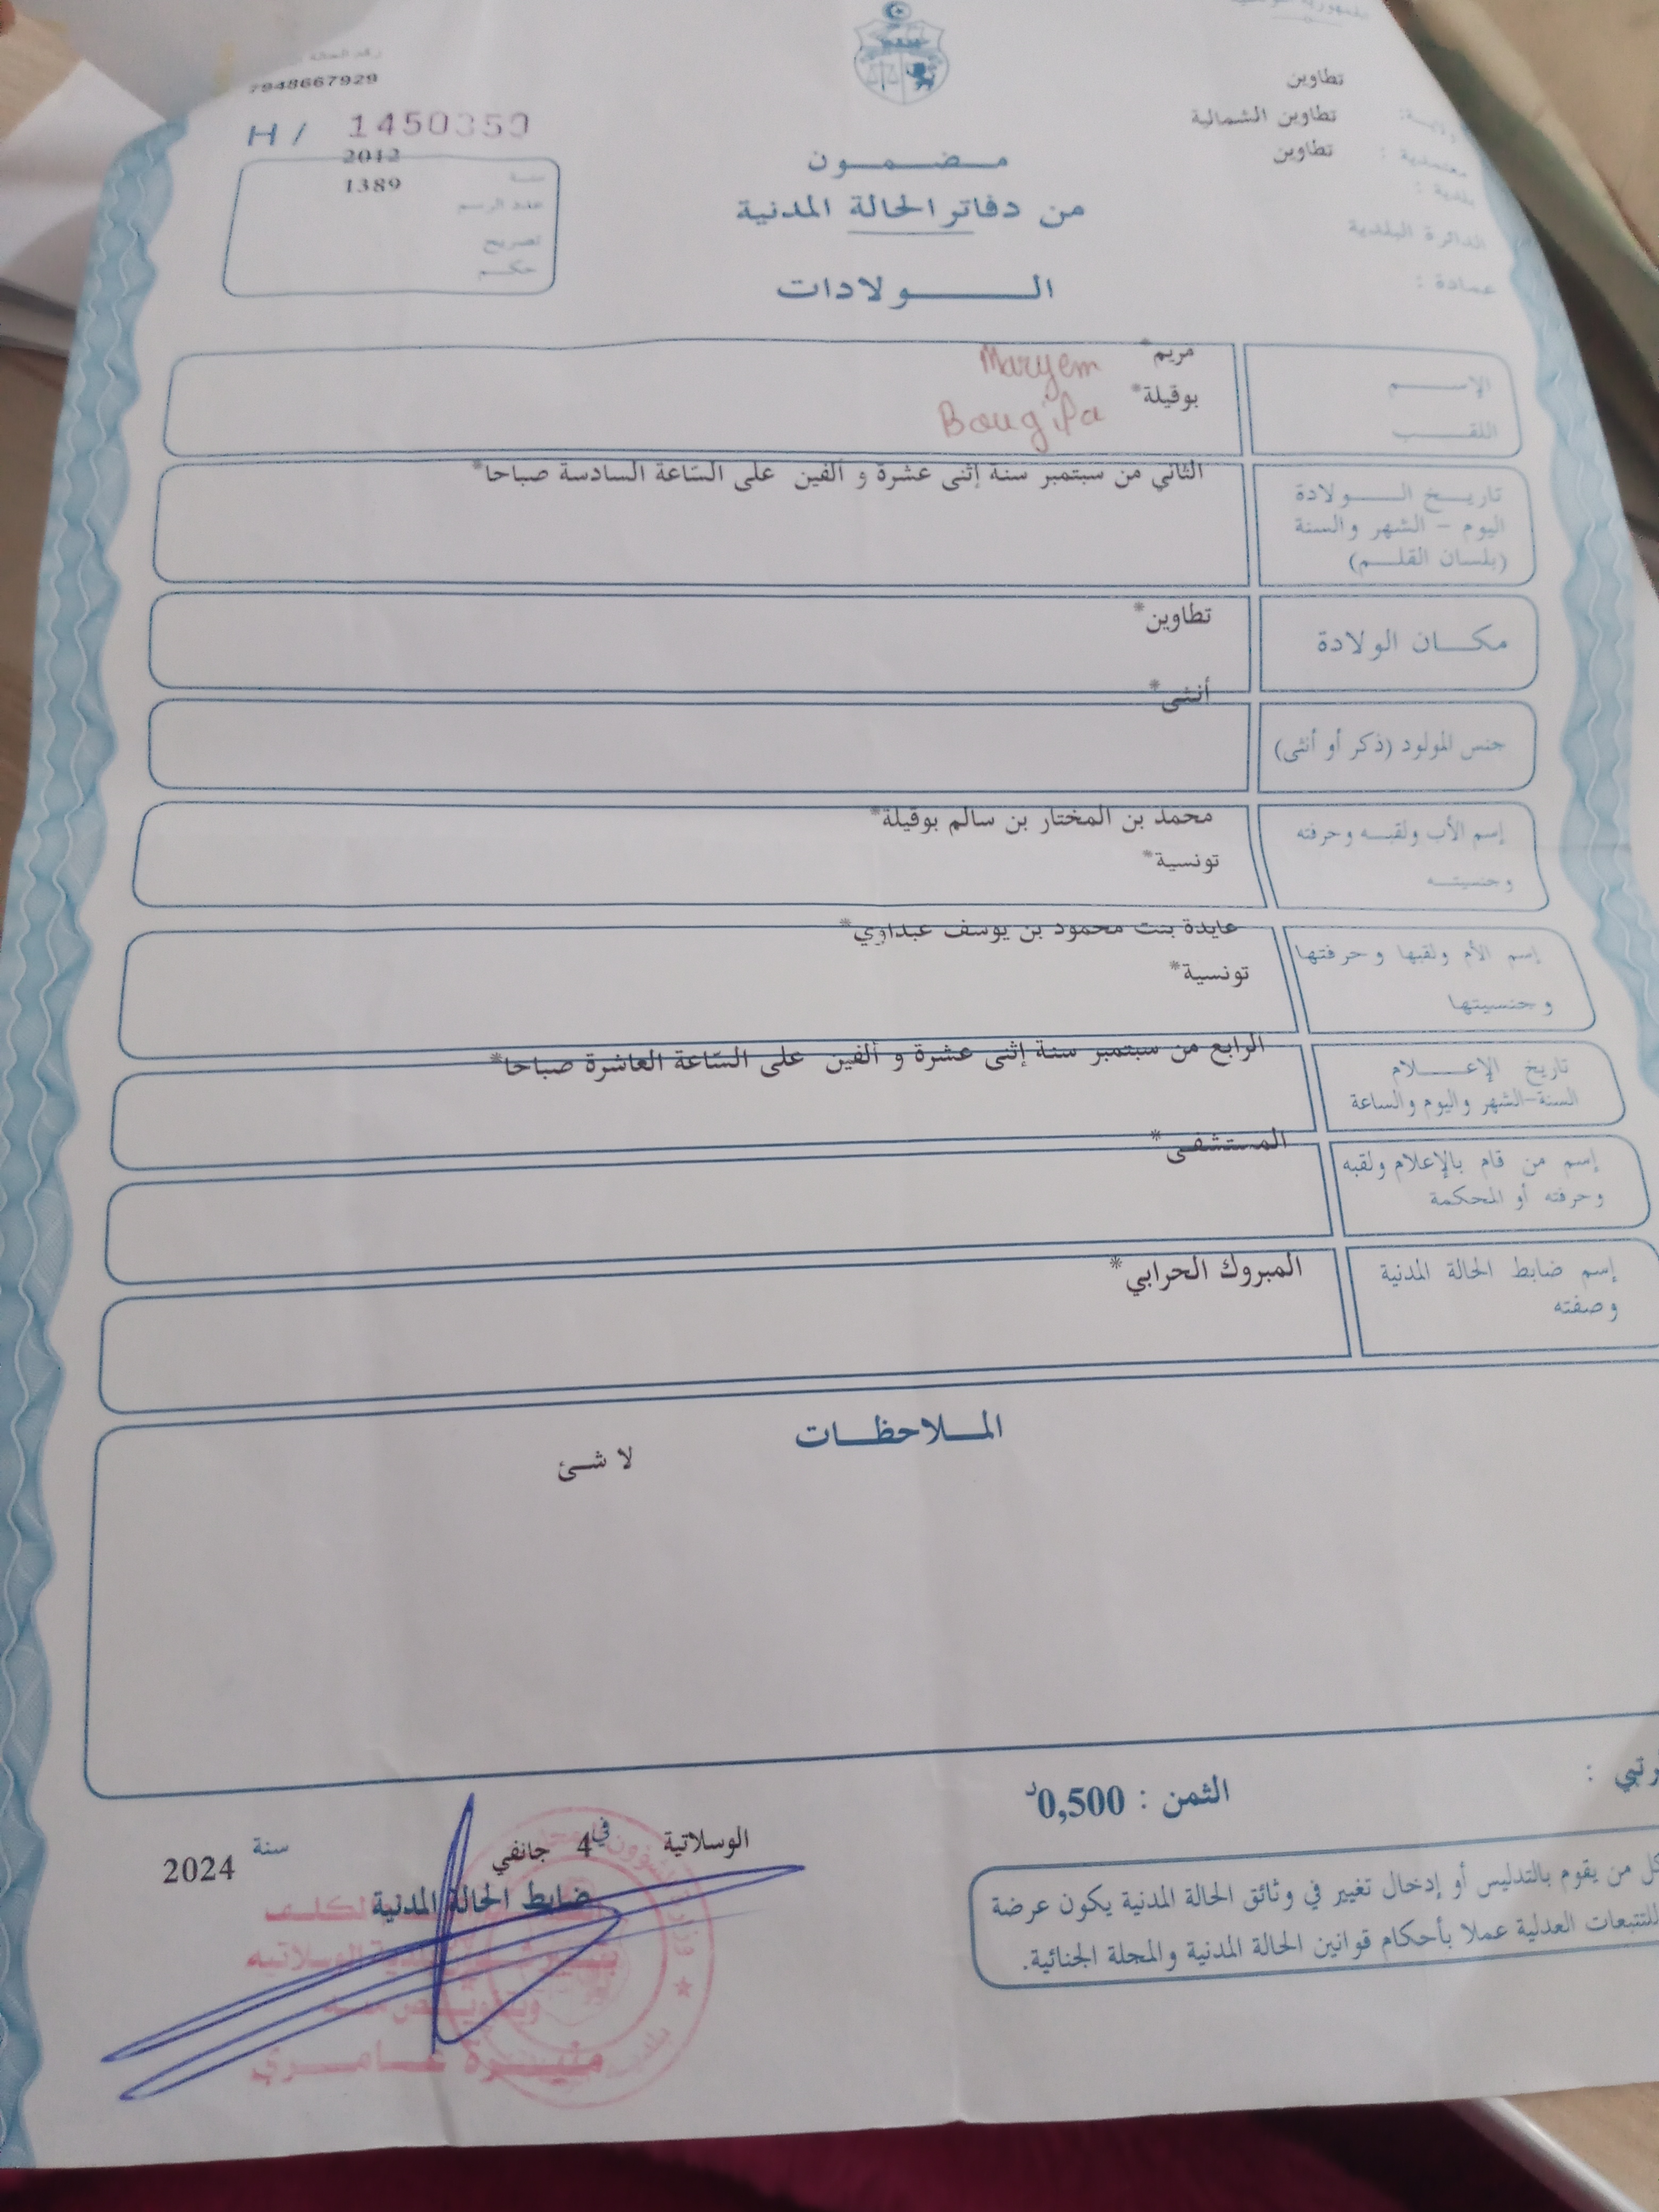 7948667929
H / 1450359
تطاوين
ولاية :
تطاوين الشمالية
معتمدية :
تطاوين
بلدية :
الدائرة البلدية
عمادة :
مضمون
من دفاتر الحالة المدنية
الولادات
سنة 2012
عدد الرسم 1389
تصريح
حكم
الإسم مريم* Maryem
اللقب بوقيلة* Bougila
تاريخ الولادة
اليوم - الشهر والسنة
(بلسان القلم)
الثاني من سبتمبر سنة إثنى عشرة و ألفين على السّاعة السادسة صباحا*
مكان الولادة
تطاوين*
جنس المولود (ذكر أو أنثى)
أنثى*
إسم الأب ولقبه وحرفته
وجنسيته
محمد بن المختار بن سالم بوقيلة*
تونسية*
إسم الأم ولقبها وحرفتها
وجنسيتها
عايدة بنت محمود بن يوسف عبداوي*
تونسية*
تاريخ الإعلام
السنة-الشهر واليوم والساعة
الرابع من سبتمبر سنة إثنى عشرة و ألفين على السّاعة العاشرة صباحا*
إسم من قام بالإعلام ولقبه
وحرفته أو المحكمة
المستشفى*
إسم ضابط الحالة المدنية
وصفته
المبروك الحرابي*
الملاحظات
لا شئ
الثمن : 0,500د
الوسلاتية في 4 جانفي سنة 2024
ضابط الحالة المدنية
منيرة عامري
كل من يقوم بالتدليس أو إدخال تغيير في وثائق الحالة المدنية يكون عرضة
للتتبعات العدلية عملا بأحكام قوانين الحالة المدنية والمجلة الجنائية.